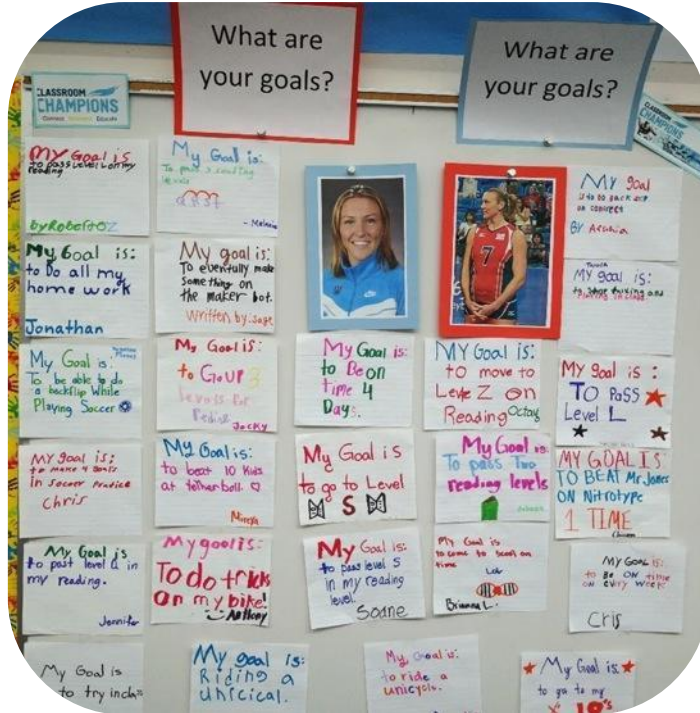 What are
your goals?
What are
your goals?
CLASSROOM
CHAMPIONS
CLASSROOM
CHAMPIONS
My Goal is
to pass level on my
reading
by Roberto
My Goal is:
- Melanie
My goal
By
My Goal is:
to do all my
home work
Jonathan
My goal is:
To eventually make
something on
the maker bot.
Written by: Sage
7
My goal is:
to stop talking and
playing in class
My Goal is:
To be able to do
a backflip while
Playing Soccer
My Goal is:
to Go UP 3
levels for
Jacky
My Goal is:
to Be on
time 4
Days.
MY Goal is:
to move to
Level Z on
Reading
My goal is:
TO PASS
Level L
My goal is:
to make 4 goals
in soccer practice
Chris
My Goal is:
to beat 10 kids
at tetherball.
My Goal is
to go to Level
S
My Goal is
To pass Two
reading levels
MY GOAL IS
TO BEAT Mr. Jones
ON Nitrotype
1 TIME
My Goal is
to past level Q in
my reading.
Jennifer
My goal is:
To do tricks
on my bike!
Anthony
My Goal is:
to pass level S
in my reading
level.
Soane
My Goal is
to come to school on
time
Brianna L.
My Goal is:
to Be ON time
on every week
Cris
My Goal is
to try
My goal is:
Riding a
unicical.
My Goal is:
to ride a
unicycle.
My Goal is:
to go to my
10's